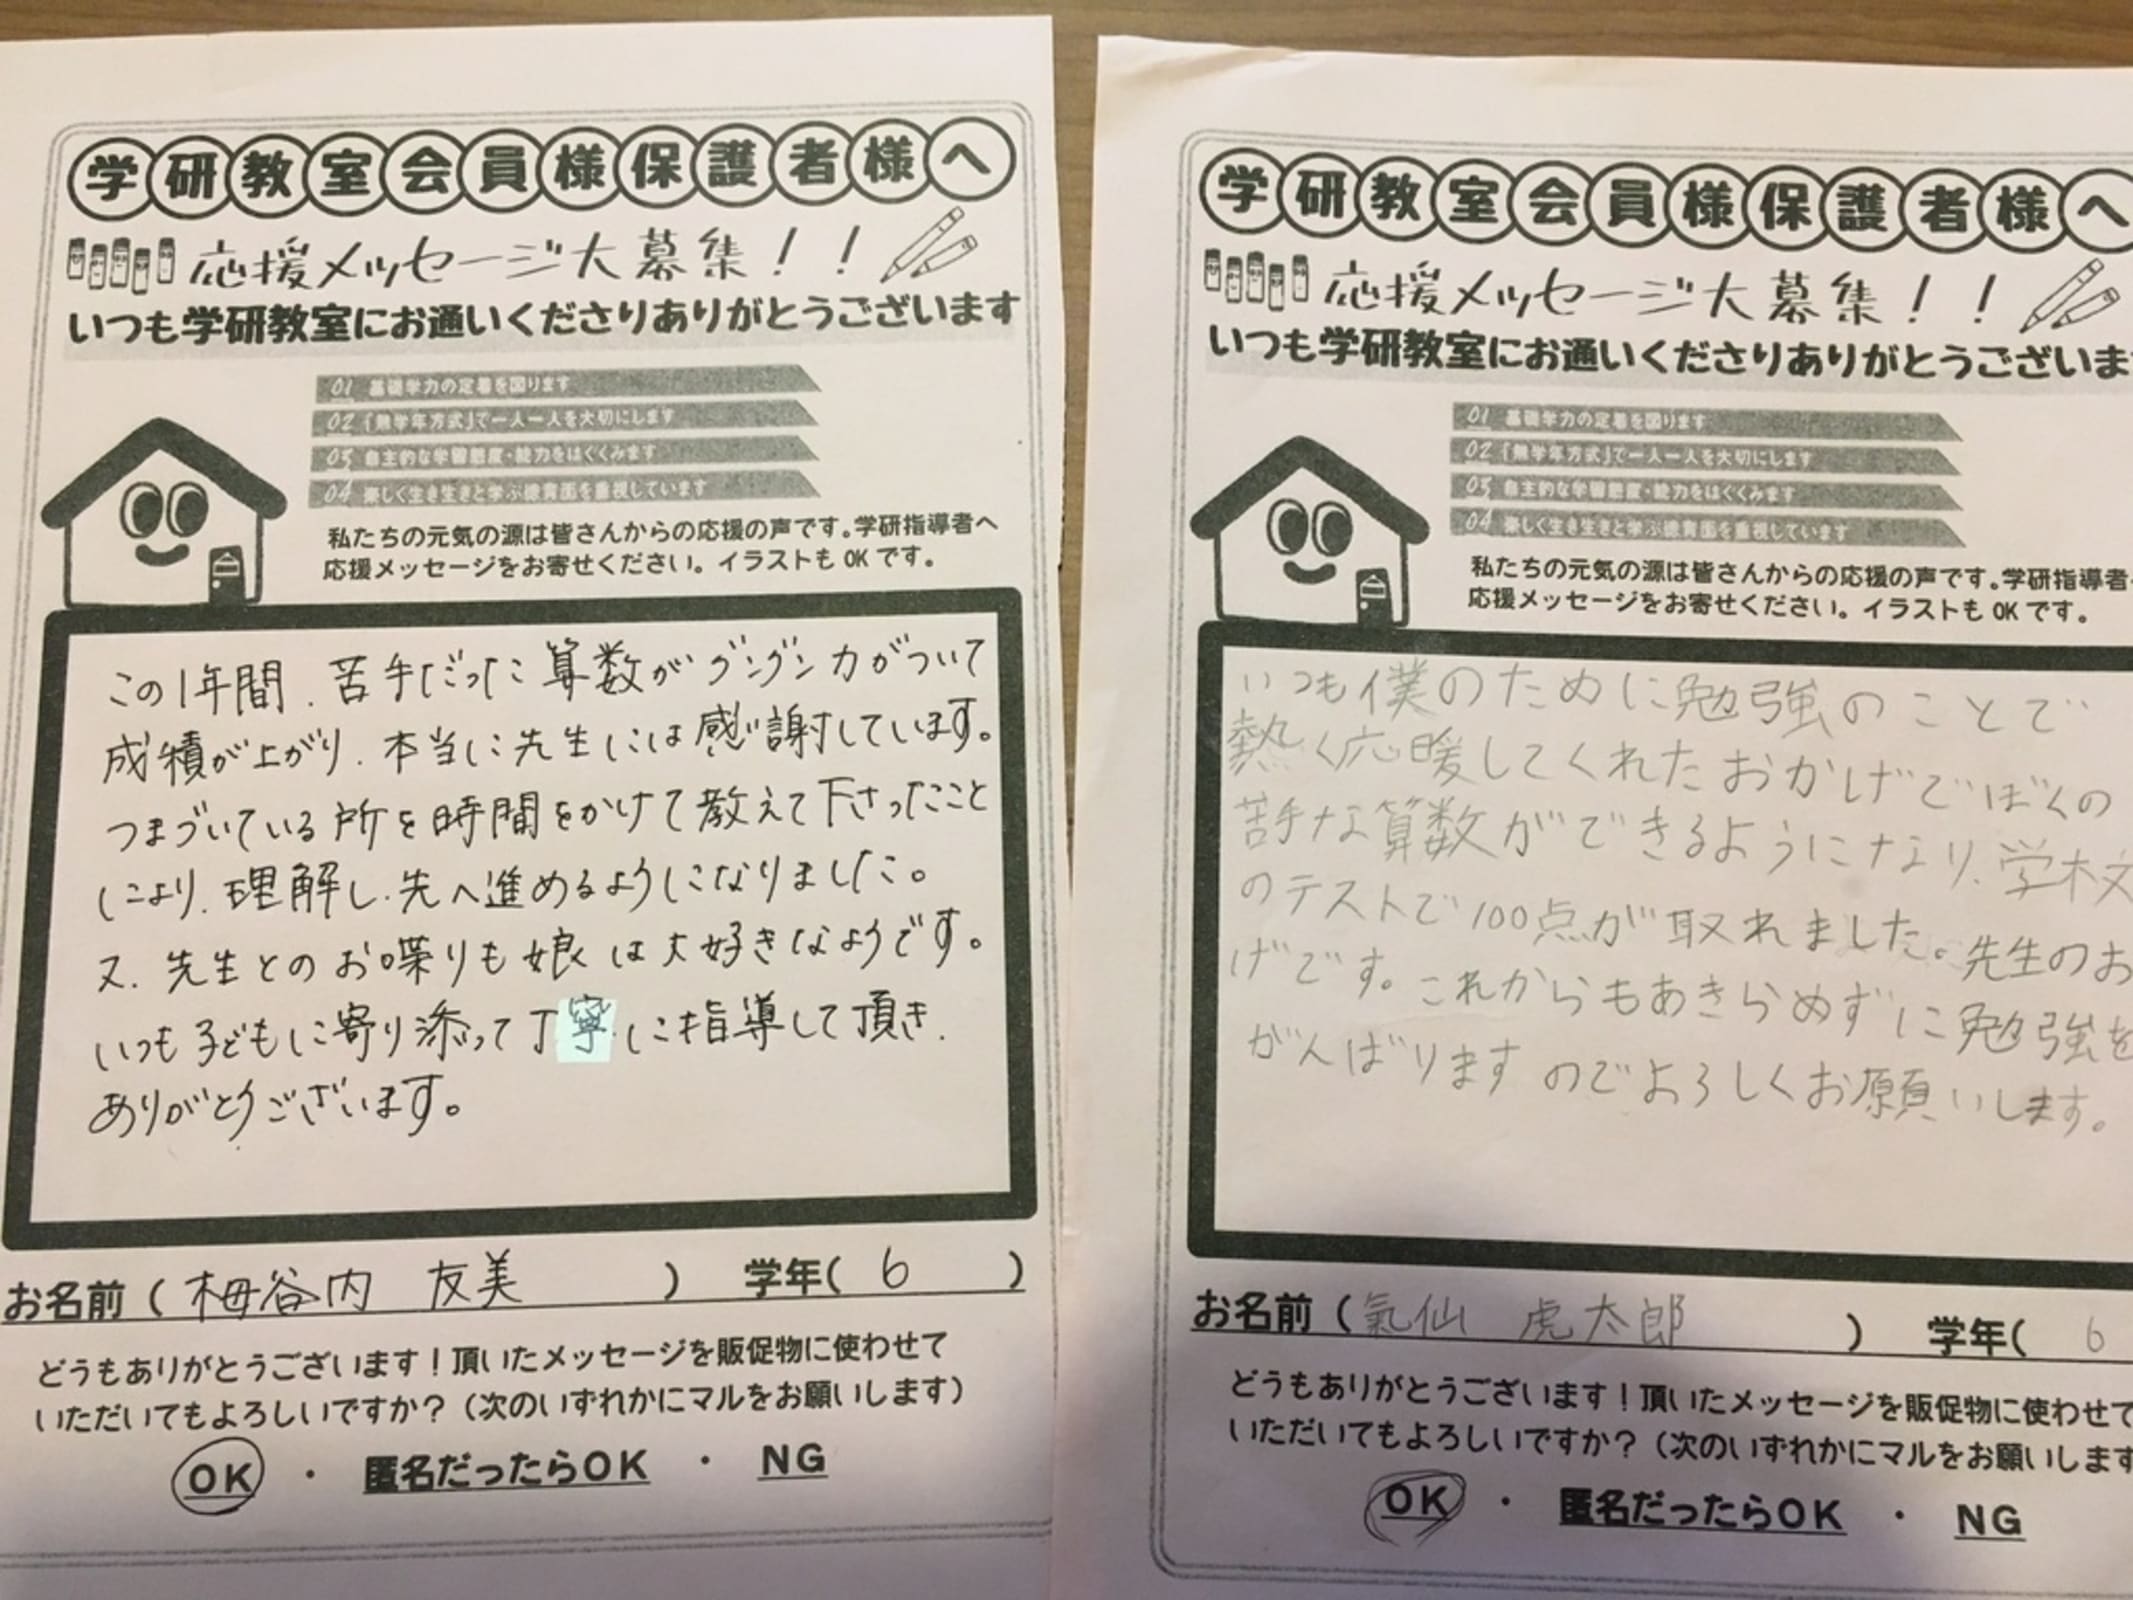 学研教室会員様保護者様へ
応援メッセージ大募集！！
いつも学研教室にお通いくださりありがとうございます
01 基礎学力の定着を図ります
02 「無学年方式」で一人一人を大切にします
03 自主的な学習態度・能力をはぐくみます
04 楽しく生き生きと学ぶ徳育面を重視しています
私たちの元気の源は皆さんからの応援の声です。学研指導者へ
応援メッセージをお寄せください。イラストもOKです。
この1年間、苦手だった算数がグングン力がついて
成積が上がり、本当に先生には感謝しています。
つまづいている所を時間をかけて教えて下さったこと
により、理解し、先へ進めるようになりました。
又、先生とのお喋りも娘は大好きなようです。
いつも子どもに寄り添って丁寧に指導して頂き、
ありがとうございます。
お名前（栂谷内 友美）学年（6）
どうもありがとうございます！頂いたメッセージを販促物に使わせて
いただいてもよろしいですか？（次のいずれかにマルをお願いします）
OK ・ 匿名だったらOK ・ NG
学研教室会員様保護者様へ
応援メッセージ大募集！！
いつも学研教室にお通いくださりありがとうございま
01 基礎学力の定着を図ります
02 「無学年方式」で一人一人を大切にします
03 自主的な学習態度・能力をはぐくみます
04 楽しく生き生きと学ぶ徳育面を重視しています
私たちの元気の源は皆さんからの応援の声です。学研指導者
応援メッセージをお寄せください。イラストもOKです。
いつも僕のために勉強のことで
熱く応暖してくれたおかげでぼくの
苦手な算数ができるようになり、学校
のテストで100点が取れました。先生のお
げです。これからもあきらめずに勉強を
がんばりますのでよろしくお願いします。
お名前（氣仙 虎太郎）学年（6
どうもありがとうございます！頂いたメッセージを販促物に使わせて
いただいてもよろしいですか？（次のいずれかにマルをお願いします
OK ・ 匿名だったらOK ・ NG